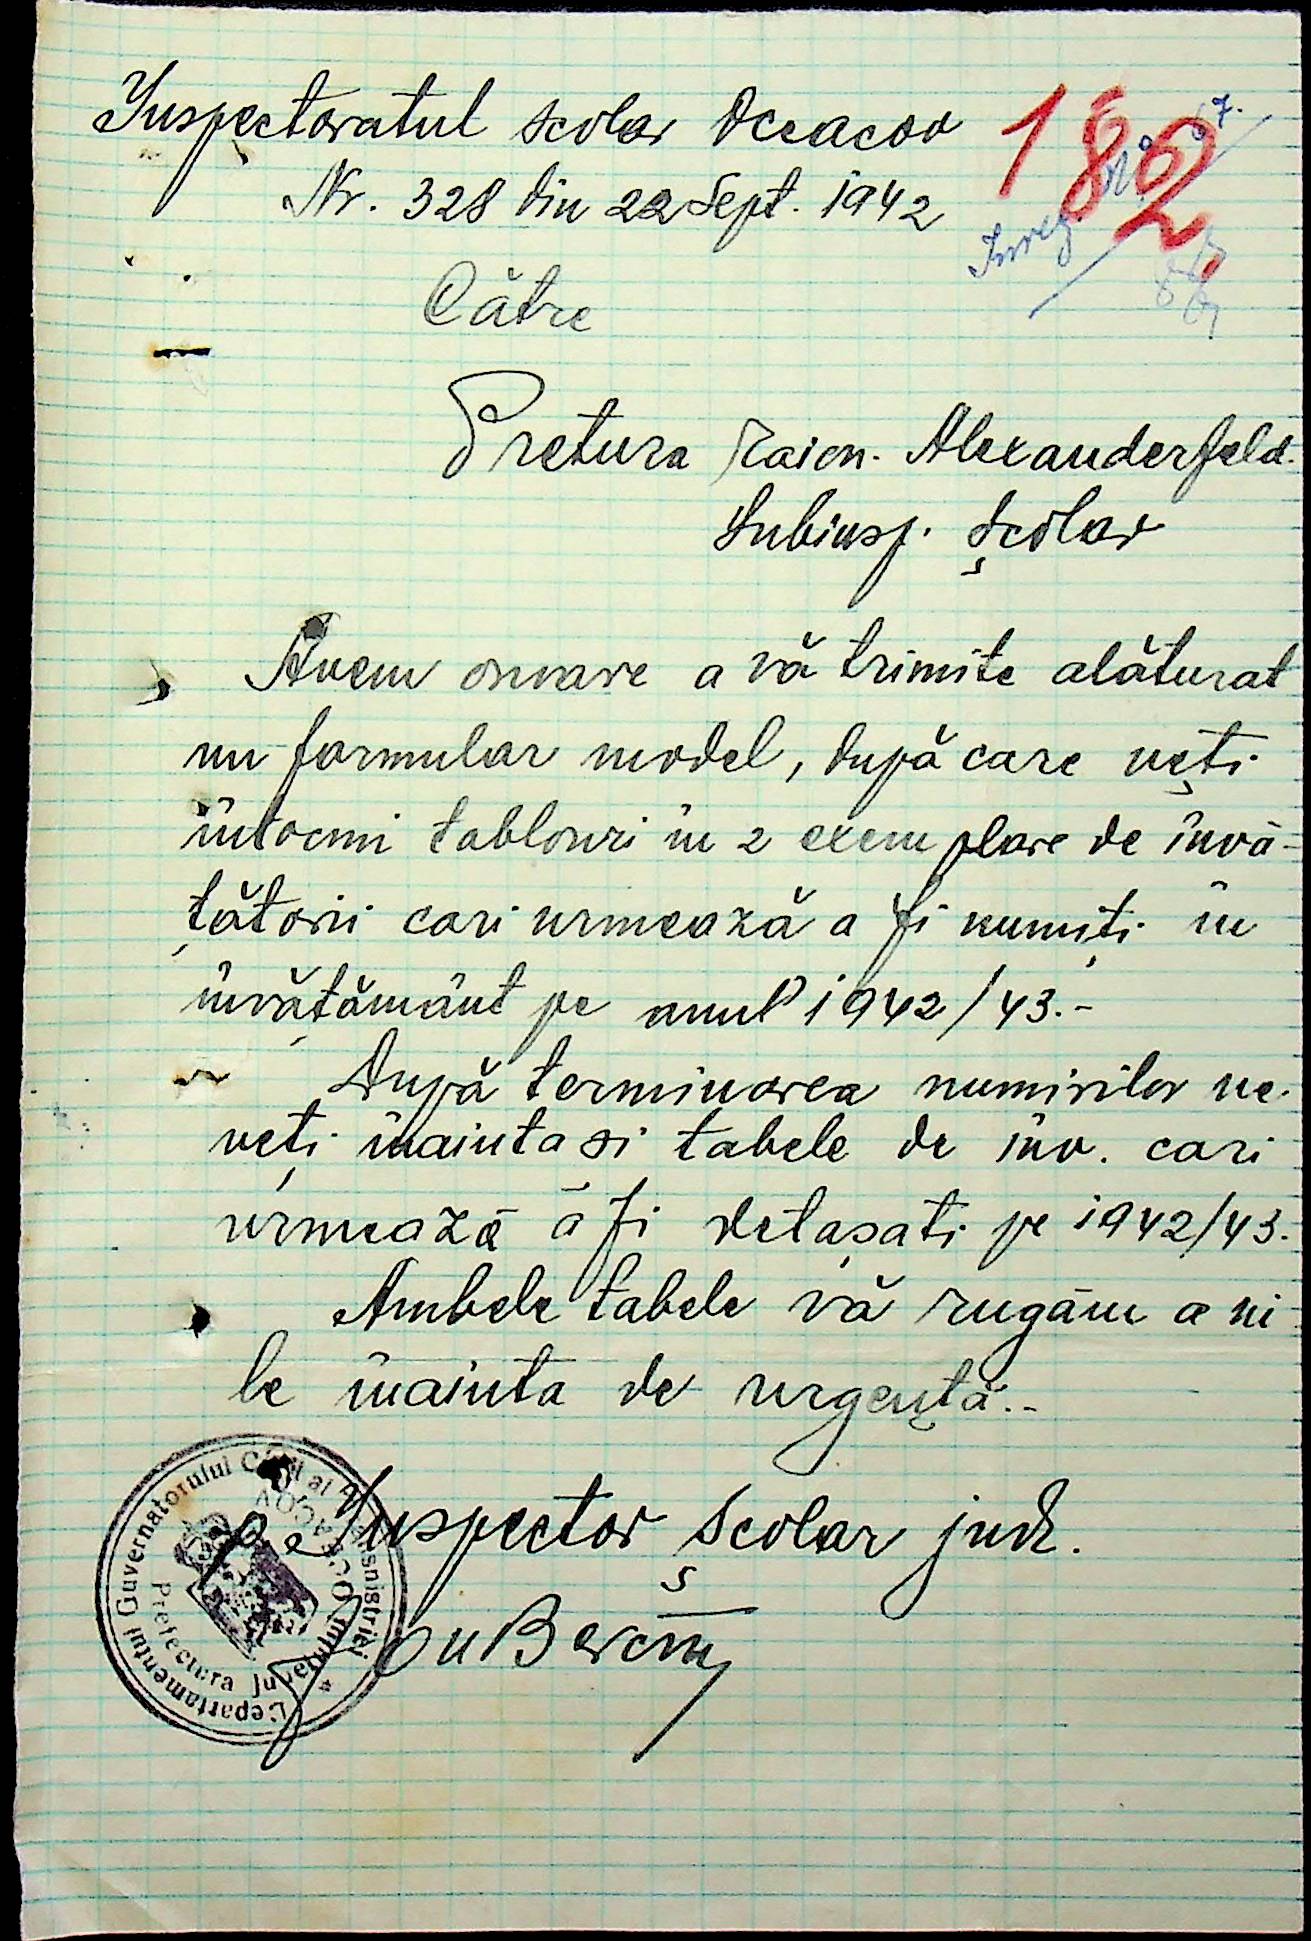 Inspectoratul scolar Oceacov
182
Nr. 328 din 22 Sept. 1942
Inreg
Către
Pretura raion. Alexanderfeld.
Subinsp. Școlar
Avem onoare a vă trimite alăturat
un formular model, după care veți
întocmi tablouri în 2 exemplare de învă-
țătorii cari urmează a fi numiți în
învățământ pe anul 1942/43.-
După terminarea numirilor ne
veți înainta si tabele de înv. cari
urmează a fi detașati pe 1942/43.
Ambele tabele vă rugăm a ni
le înainta de urgență.-
p. Inspector Școlar jud.
Departamentul Guvernatorului Civil al Transnistriei
Prefectura Județului Oceacov